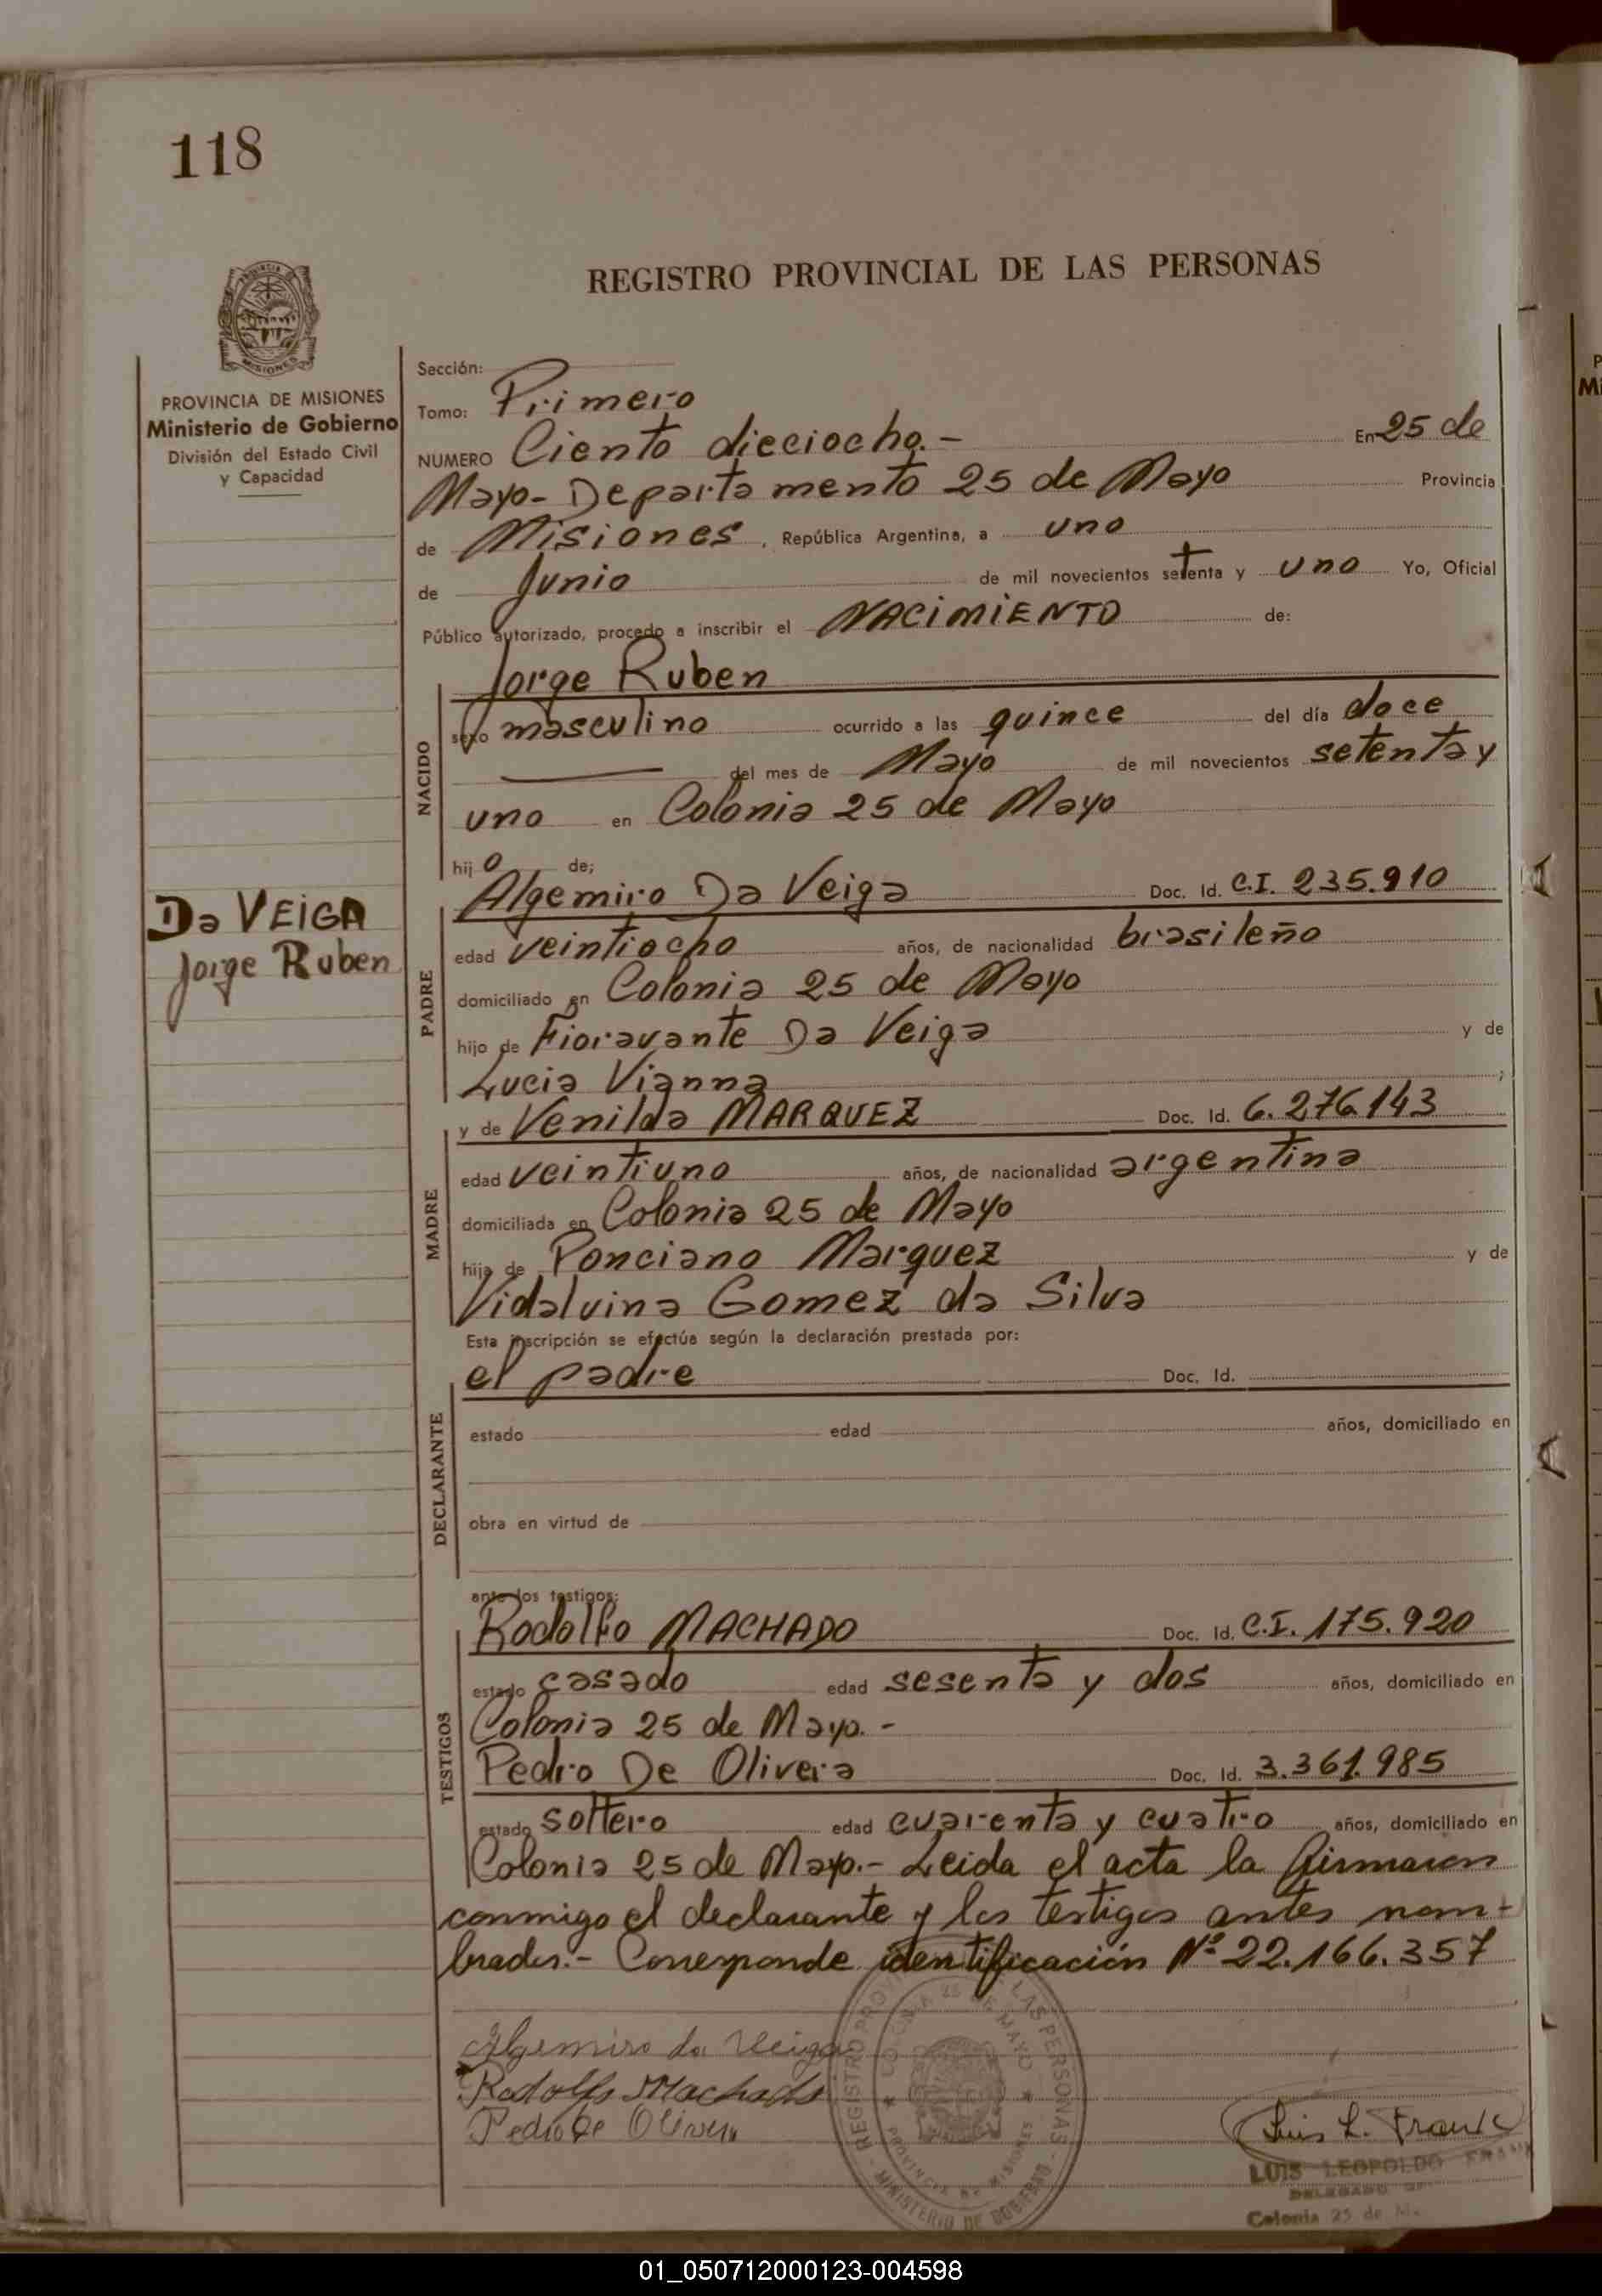 118
REGISTRO PROVINCIAL DE LAS PERSONAS
MISIONES
PROVINCIA DE MISIONES
Ministerio de Gobierno
División del Estado Civil
y Capacidad
Sección:
Tomo: Primero
NUMERO Ciento dieciocho.- En 25 de
Mayo- Departamento 25 de Mayo Provincia
de Misiones, República Argentina, a uno
de Junio de mil novecientos setenta y uno Yo, Oficial
Público autorizado, procedo a inscribir el NACIMIENTO de:
Jorge Ruben
NACIDO
sexo masculino ocurrido a las quince del día doce
del mes de Mayo de mil novecientos setenta y
uno en Colonia 25 de Mayo
hijo de;
Algemiro Da Veiga Doc. Id. C.I. 235.910
Da VEIGA
Jorge Ruben
PADRE
edad veintiocho años, de nacionalidad brasileño
domiciliado en Colonia 25 de Mayo
hijo de Fioravante Da Veiga y de
Lucia Vianna;
y de Venilda MARQUEZ Doc. Id. 6.276.143
MADRE
edad veintiuno años, de nacionalidad argentina
domiciliada en Colonia 25 de Mayo
hija de Ponciano Marquez y de
Vidalvina Gomez da Silva
Esta inscripción se efectúa según la declaración prestada por:
el padre Doc. Id.
DECLARANTE
estado edad años, domiciliado en
obra en virtud de
ante los testigos:
Rodolfo MACHADO Doc. Id. C.I. 175.920
TESTIGOS
estado casado edad sesenta y dos años, domiciliado en
Colonia 25 de Mayo.-
Pedro De Olivera Doc. Id. 3.361.985
estado soltero edad cuarenta y cuatro años, domiciliado en
Colonia 25 de Mayo.- Leida el acta la firmaron
conmigo el declarante y los testigos antes nom-
brados.- Corresponde identificación Nº 22.166.357
Algemiro da Veiga
Rodolfo Machado
Pedro de Olivera
REGISTRO PROV LAS PERSONAS
25 DE MAYO
PROVINCIA DE MISIONES
MINISTERIO DE GOBIERNO
Luis L. Frank
LUIS LEOPOLDO FRANK
DELEGADO
Colonia 25 de M
01_050712000123-004598